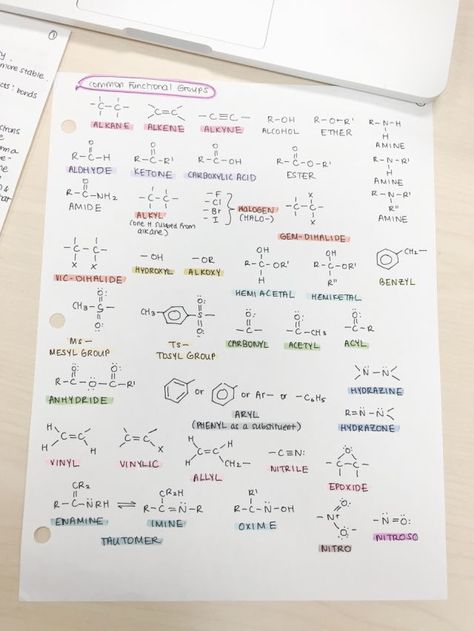 more stable.
bonds
Common Functional Groups
-C-C- C=C -C≡C- R-OH R-O-R' R-N-H
ALKANE ALKENE ALKYNE ALCOHOL ETHER H
AMINE
O O O O
R-C-H R-C-R' R-C-OH R-C-O-R' R-N-R'
ALDHYDE KETONE CARBOXYLIC ACID ESTER H
AMINE
O
R-C-NH2 -C-C- -F -Cl -Br I HALOGEN (HALO-) X -C-C- X R-N-R'
AMIDE ALKYL R"
(one H subbed from GEM-DIHALIDE AMINE
alkane)
-C-C- -OH -OR OH R-C-OR' H OH R-C-OR' R" CH2-
X X HYDROXYL ALKOXY BENZYL
VIC-DIHALIDE HEMIACETAL HEMIKETAL
:O: :O: :O: :O: :O:
CH3-S- CH3- -S- -C- -C-CH3 -C-R
:O: :O: CARBONYL ACETYL ACYL
Ms- Ts-
MESYL GROUP TOSYL GROUP
:O: :O:
R-C-O-C-R' or or Ar- or -C6H5 N-N
ANHYDRIDE ARYL HYDRAZINE
(PHENYL as a substituent) R=N-N
HYDRAZONE
H C=C H H C=C X H C=C H H CH2- -C≡N: O C-C
VINYL VINYLIC ALLYL NITRILE EPOXIDE
CR2 CR2H R'
R-C-NRH ⇌ R-C=N-R R-C=N-OH -N+ O O- -N=O:
ENAMINE IMINE OXIME NITRO NITROSO
TAUTOMER